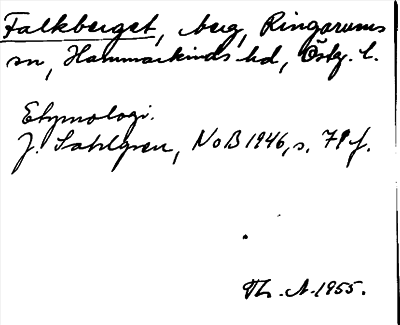 Falkberget, berg, Ringarums
sn, Hammarkinds hd, Östg. l.
Etymologi.
J. Sahlgren, NoB 1946, s. 79 f.
Th. A. 1955.